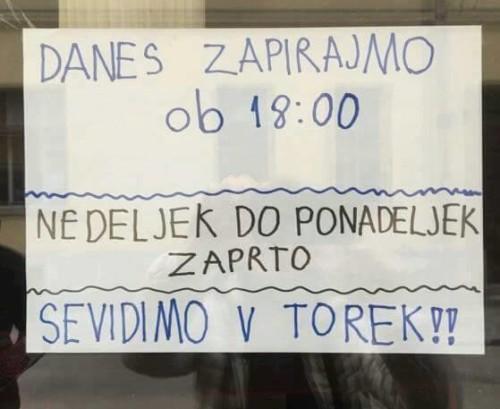 DANES ZAPIRAJMO
ob 18:00
NEDELJEK DO PONADELJEK
ZAPRTO
SEVIDIMO V TOREK!!